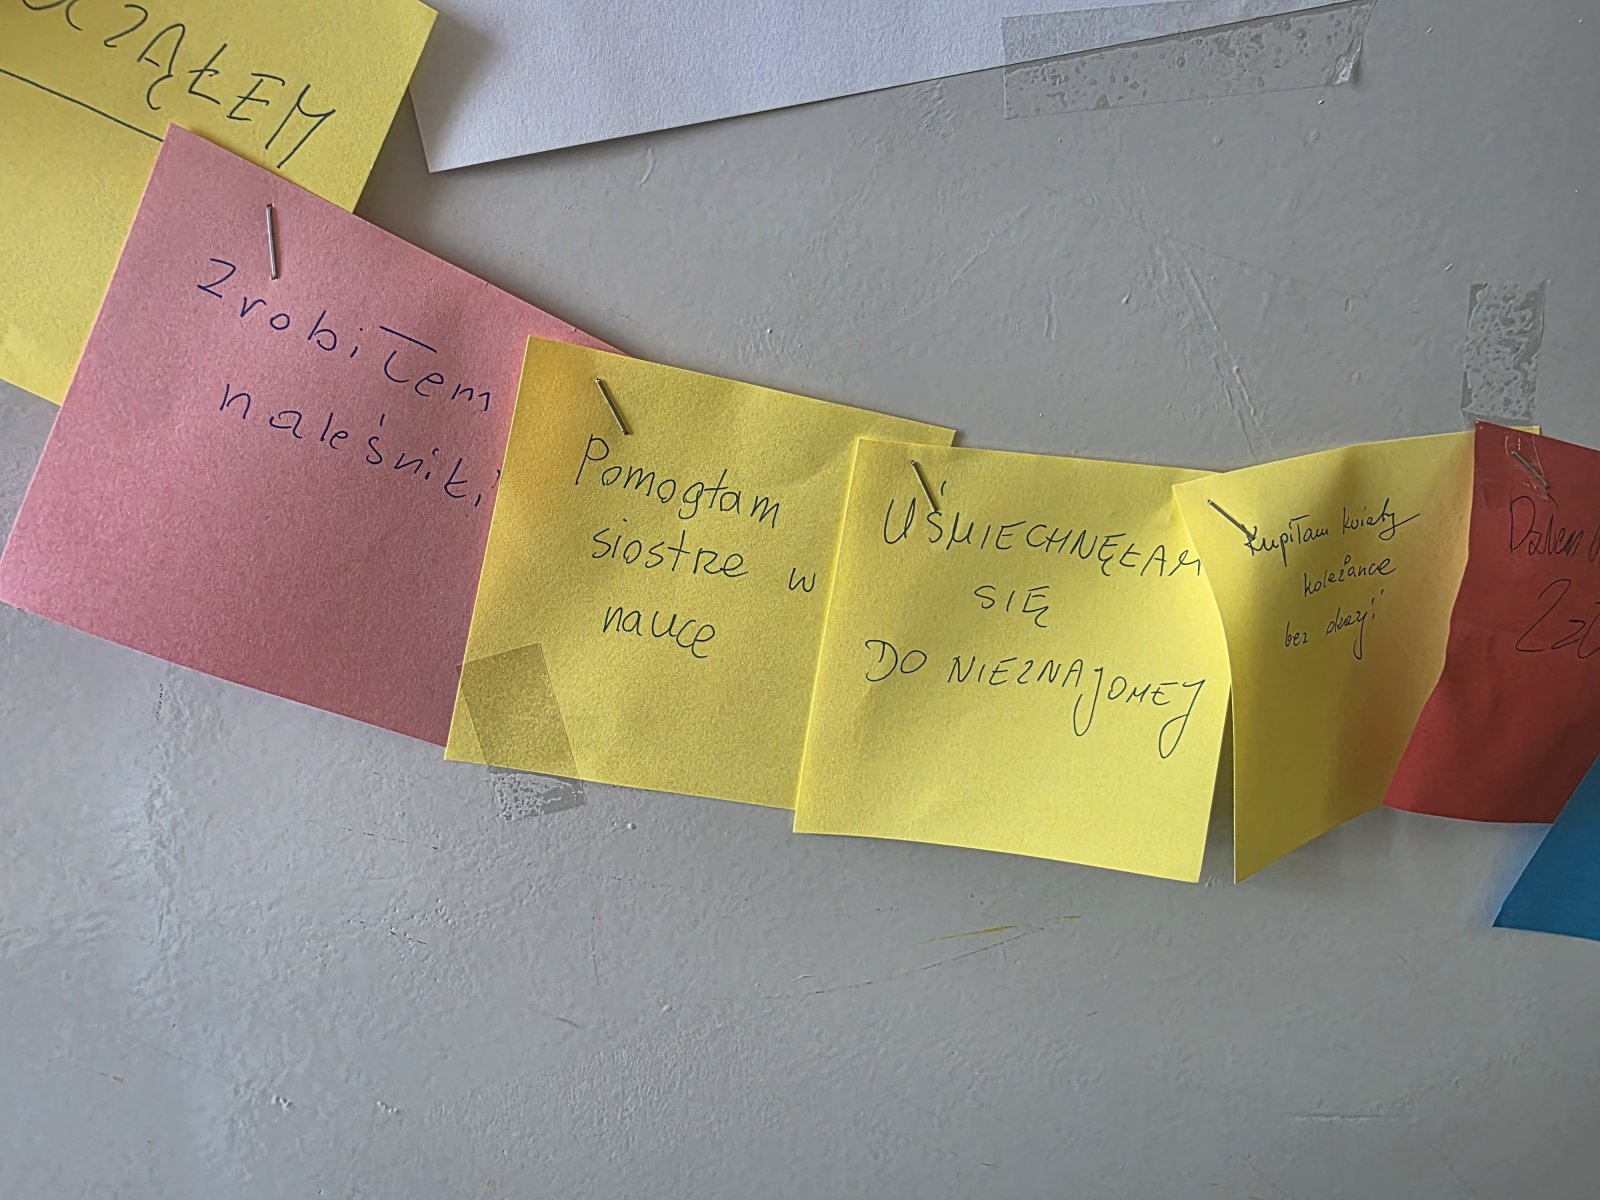 Zrobiłem
naleśniki
Pomogłam
siostrze w
nauce
UŚMIECHNĘŁAM
SIĘ
DO NIEZNAJOMEJ
Kupiłam kwiaty
koleżance
bez okazji